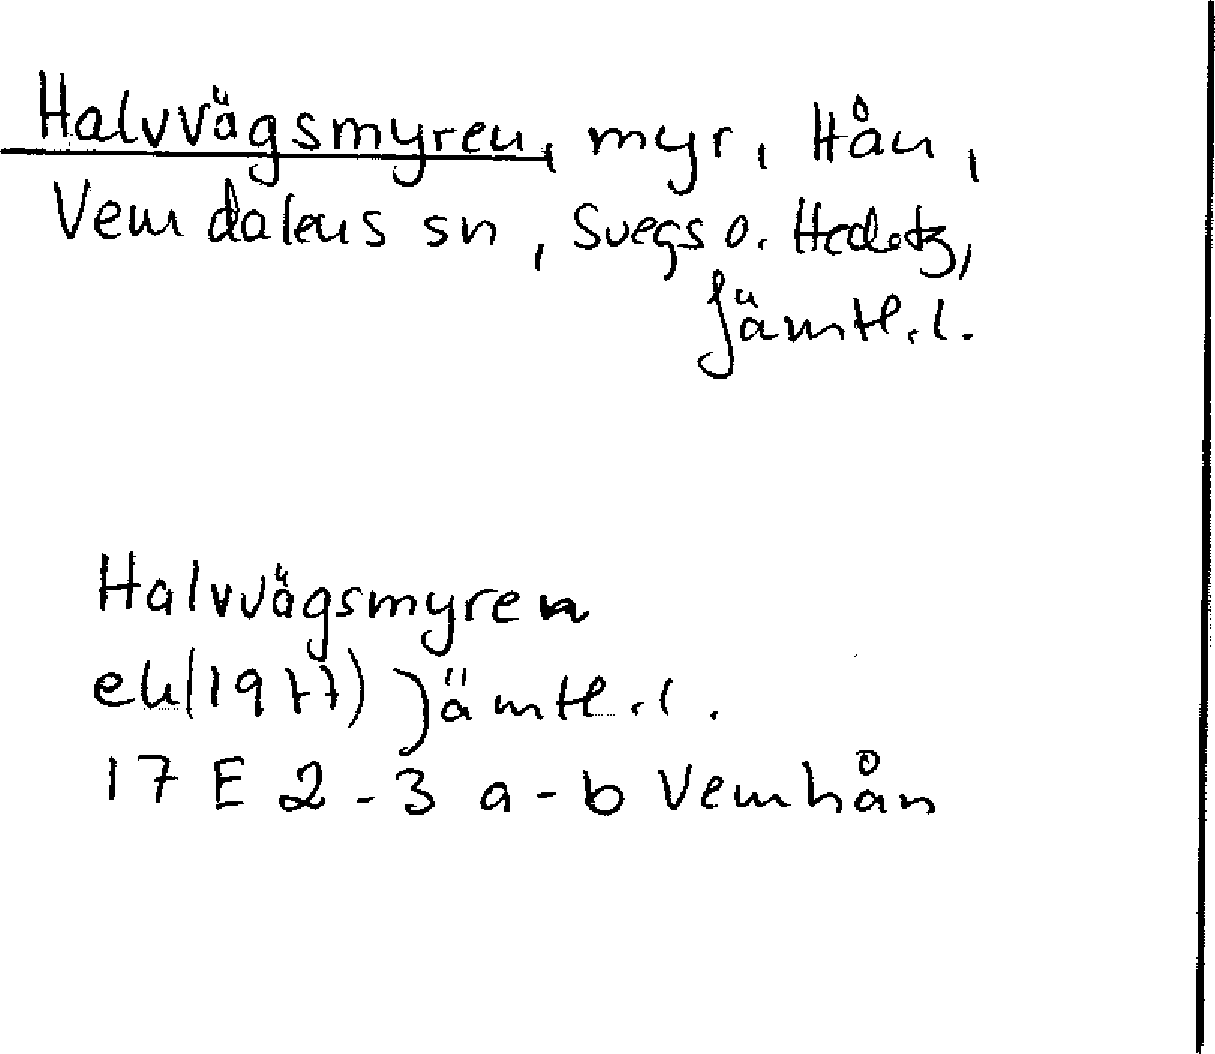 Halvvägsmyren, myr, Hån,
Vemdalens sn, Svegs o. Hedetz,
Jämtl. l.
Halvvägsmyren
ek(1977) Jämtl. l.
17 E 2-3 a-b Vemhån